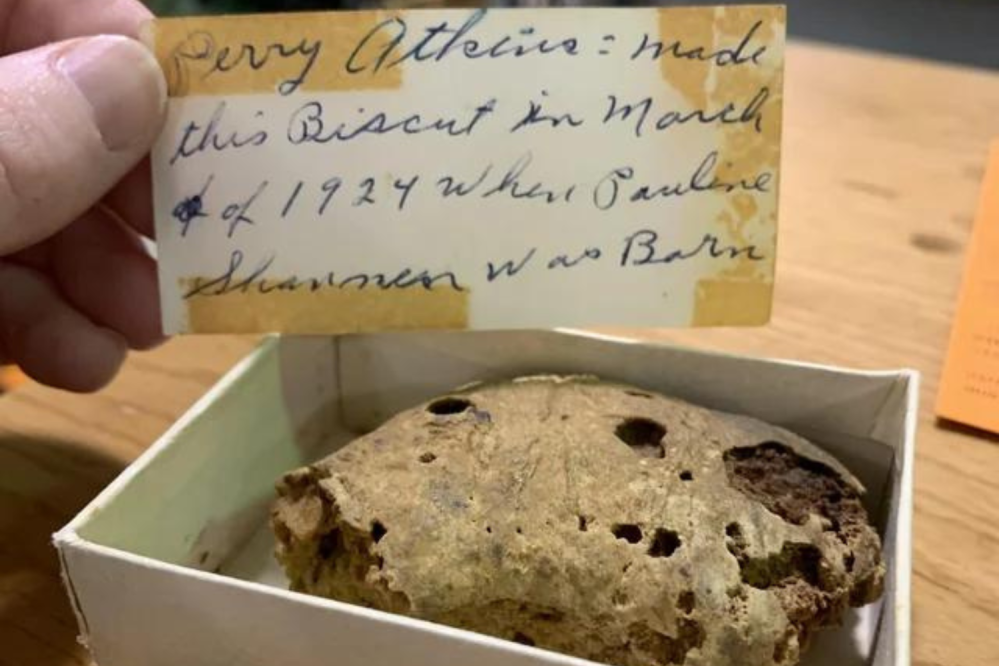 Perry Atkins = made
this Biscut in March
of 1924 When Pauline
Shannen was Barn